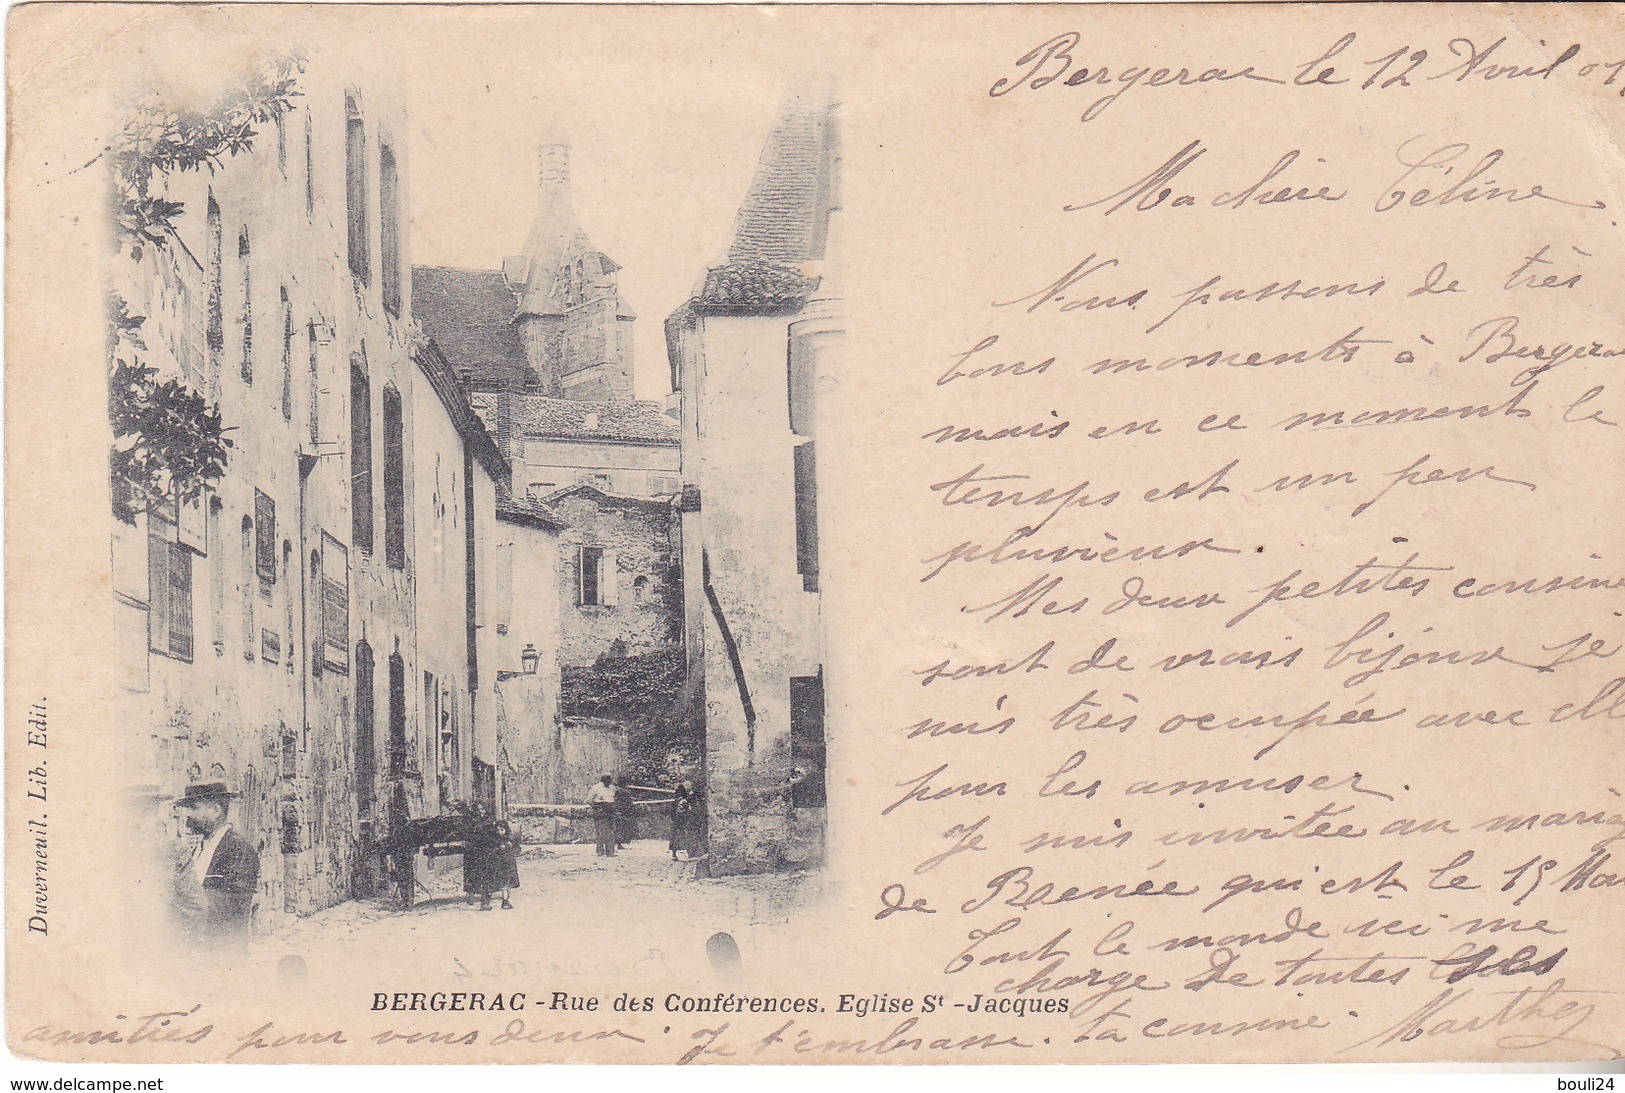 Bergerac le 12 Avril 01
Ma chère Céline
Nous passons de très
bons moments à Bergerac
mais en ce moment le
temps est un peu
pluvieux.
Mes deux petites cousine
sont de vrais bijoux je
suis très occupée avec ell
pour les amuser.
Je suis invitée au mariag
de Renée qui est le 15 Mai
Tout le monde ici me
charge de toutes
amitiés pour vous deux. Je t'embrasse. ta cousine. Marthe
BERGERAC - Rue des Conférences. Eglise St - Jacques
Duverneuil. Lib. Edit.
www.delcampe.net
bouli24